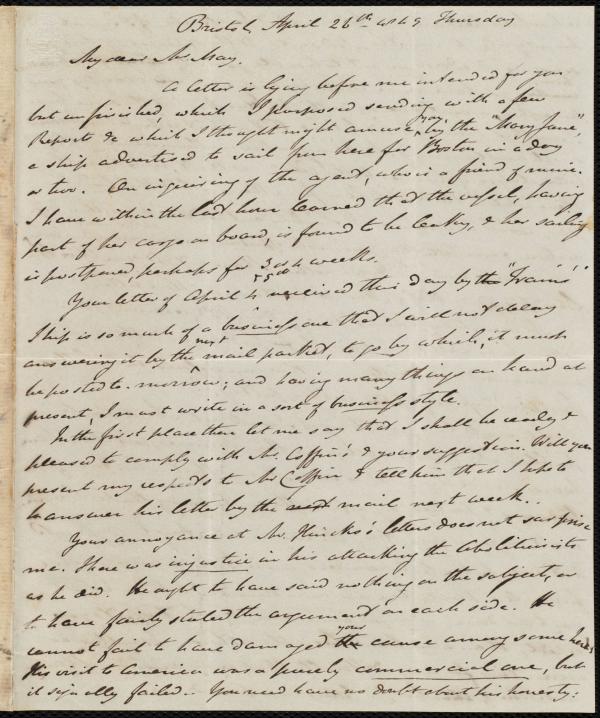 Bristol, April 26th 1849 Thursday
My dear Mr. May.
A letter is lying before me intended for you
but unfinished, which I purposed sending with a few
Reports & which I thought might amuse you, by the "Mary Jane",
a ship advertised to sail from here for Boston in a day
or two. On inquiring of the agent, who is a friend of mine.
I have within the last hour learned that the vessel, having
part of her cargo on board, is found to be leaky, & her sailing
is postponed, perhaps for 3 or 4 weeks.
Your letter of April 4 received this day by the
Ship is so much of a business one that I will not delay
answering it by the next mail packet, to go by which, it must
be posted to-morrow; and having many things on hand at
present, I must write in a sort of business style.
In the first place then let me say that I shall be ready &
pleased to comply with Mr. Coffin's & your suggestion. Will you
present my respects to Mr Coffin & tell him that I hope to
answer his letter by the next mail next week..
Your annoyance at Mr. letters does not surprise
me. There was injustice in his attacking the Abolitionists
as he did. He ought to have said nothing on the subject, or
to have fairly stated the argument on each side. He
cannot fail to have damaged the your cause among some here.
His visit to America was a purely commercial one, but
it signally failed.. You need have no doubt about his honesty: